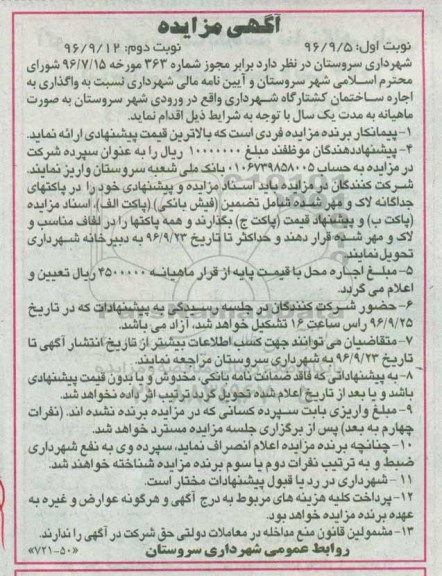 آگهی مزایده
نوبت اول: ۹۶/۹/۵ نوبت دوم: ۹۶/۹/۱۲
شهرداری سروستان در نظر دارد برابر مجوز شماره ۳۶۳ مورخه ۹۶/۷/۱۵ شورای
محترم اسلامی شهر سروستان و آیین نامه مالی شهرداری نسبت به واگذاری به
اجاره ساختمان کشتارگاه شهرداری واقع در ورودی شهر سروستان به صورت
ماهیانه به مدت یک سال با توجه به شرایط ذیل اقدام نماید.
۱- پیمانکار برنده مزایده فردی است که بالاترین قیمت پیشنهادی ارائه نماید.
۴- پیشنهاددهندگان موظفند مبلغ ۱۰۰۰۰۰۰۰ ریال را به عنوان سپرده شرکت
در مزایده به حساب ۰۱۰۶۷۳۹۸۵۸۰۰۵ بانک ملی شعبه سروستان واریز نمایند.
شرکت کنندگان در مزایده باید اسناد مزایده و پیشنهادی خود را در پاکتهای
جداگانه لاک و مهر شده شامل تضمین (فیش بانکی) (پاکت الف)، اسناد مزایده
(پاکت ب) و پیشنهاد قیمت (پاکت ج) بگذارند و همه پاکتها را در لفاف مناسب و
لاک و مهر شده قرار دهند و حداکثر تا تاریخ ۹۶/۹/۲۳ به دبیرخانه شهرداری
تحویل نمایند.
۵- مبلغ اجاره محل با قیمت پایه از قرار ماهیانه ۳۵۰۰۰۰۰ ریال تعیین و
اعلام می گردد.
۶- حضور شرکت کنندگان در جلسه رسیدگی به پیشنهادات که در تاریخ
۹۶/۹/۲۵ راس ساعت ۱۶ تشکیل خواهد شد، آزاد می باشد.
۷- متقاضیان می توانند جهت کسب اطلاعات بیشتر از تاریخ انتشار آگهی تا
تاریخ ۹۶/۹/۲۳ به شهرداری سروستان مراجعه نمایند.
۸- به پیشنهاداتی که فاقد ضمانت نامه بانکی، مخدوش و یا بدون قیمت پیشنهادی
باشد و یا بعد از تاریخ اعلام شده تحویل گردد ترتیب اثر داده نخواهد شد.
۹- مبلغ واریزی بابت سپرده کسانی که در مزایده برنده نشده اند. (نفرات
چهارم به بعد) پس از برگزاری جلسه مزایده مسترد خواهد شد.
۱۰- چنانچه برنده مزایده اعلام انصراف نماید، سپرده وی به نفع شهرداری
ضبط و به ترتیب نفرات دوم یا سوم برنده مزایده شناخته خواهند شد.
۱۱- شهرداری در رد یا قبول پیشنهادات مختار است.
۱۲- پرداخت کلیه هزینه های مربوط به درج آگهی و هرگونه عوارض و غیره به
عهده برنده مزایده خواهد بود.
۱۳- مشمولین قانون منع مداخله در معاملات دولتی حق شرکت در آگهی را ندارند.
روابط عمومی شهرداری سروستان «۷۲۱-۵۰»